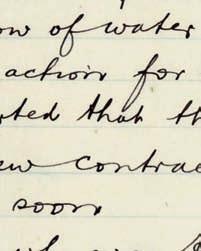 ow of water
action for
rted that th
ew contrac
soon